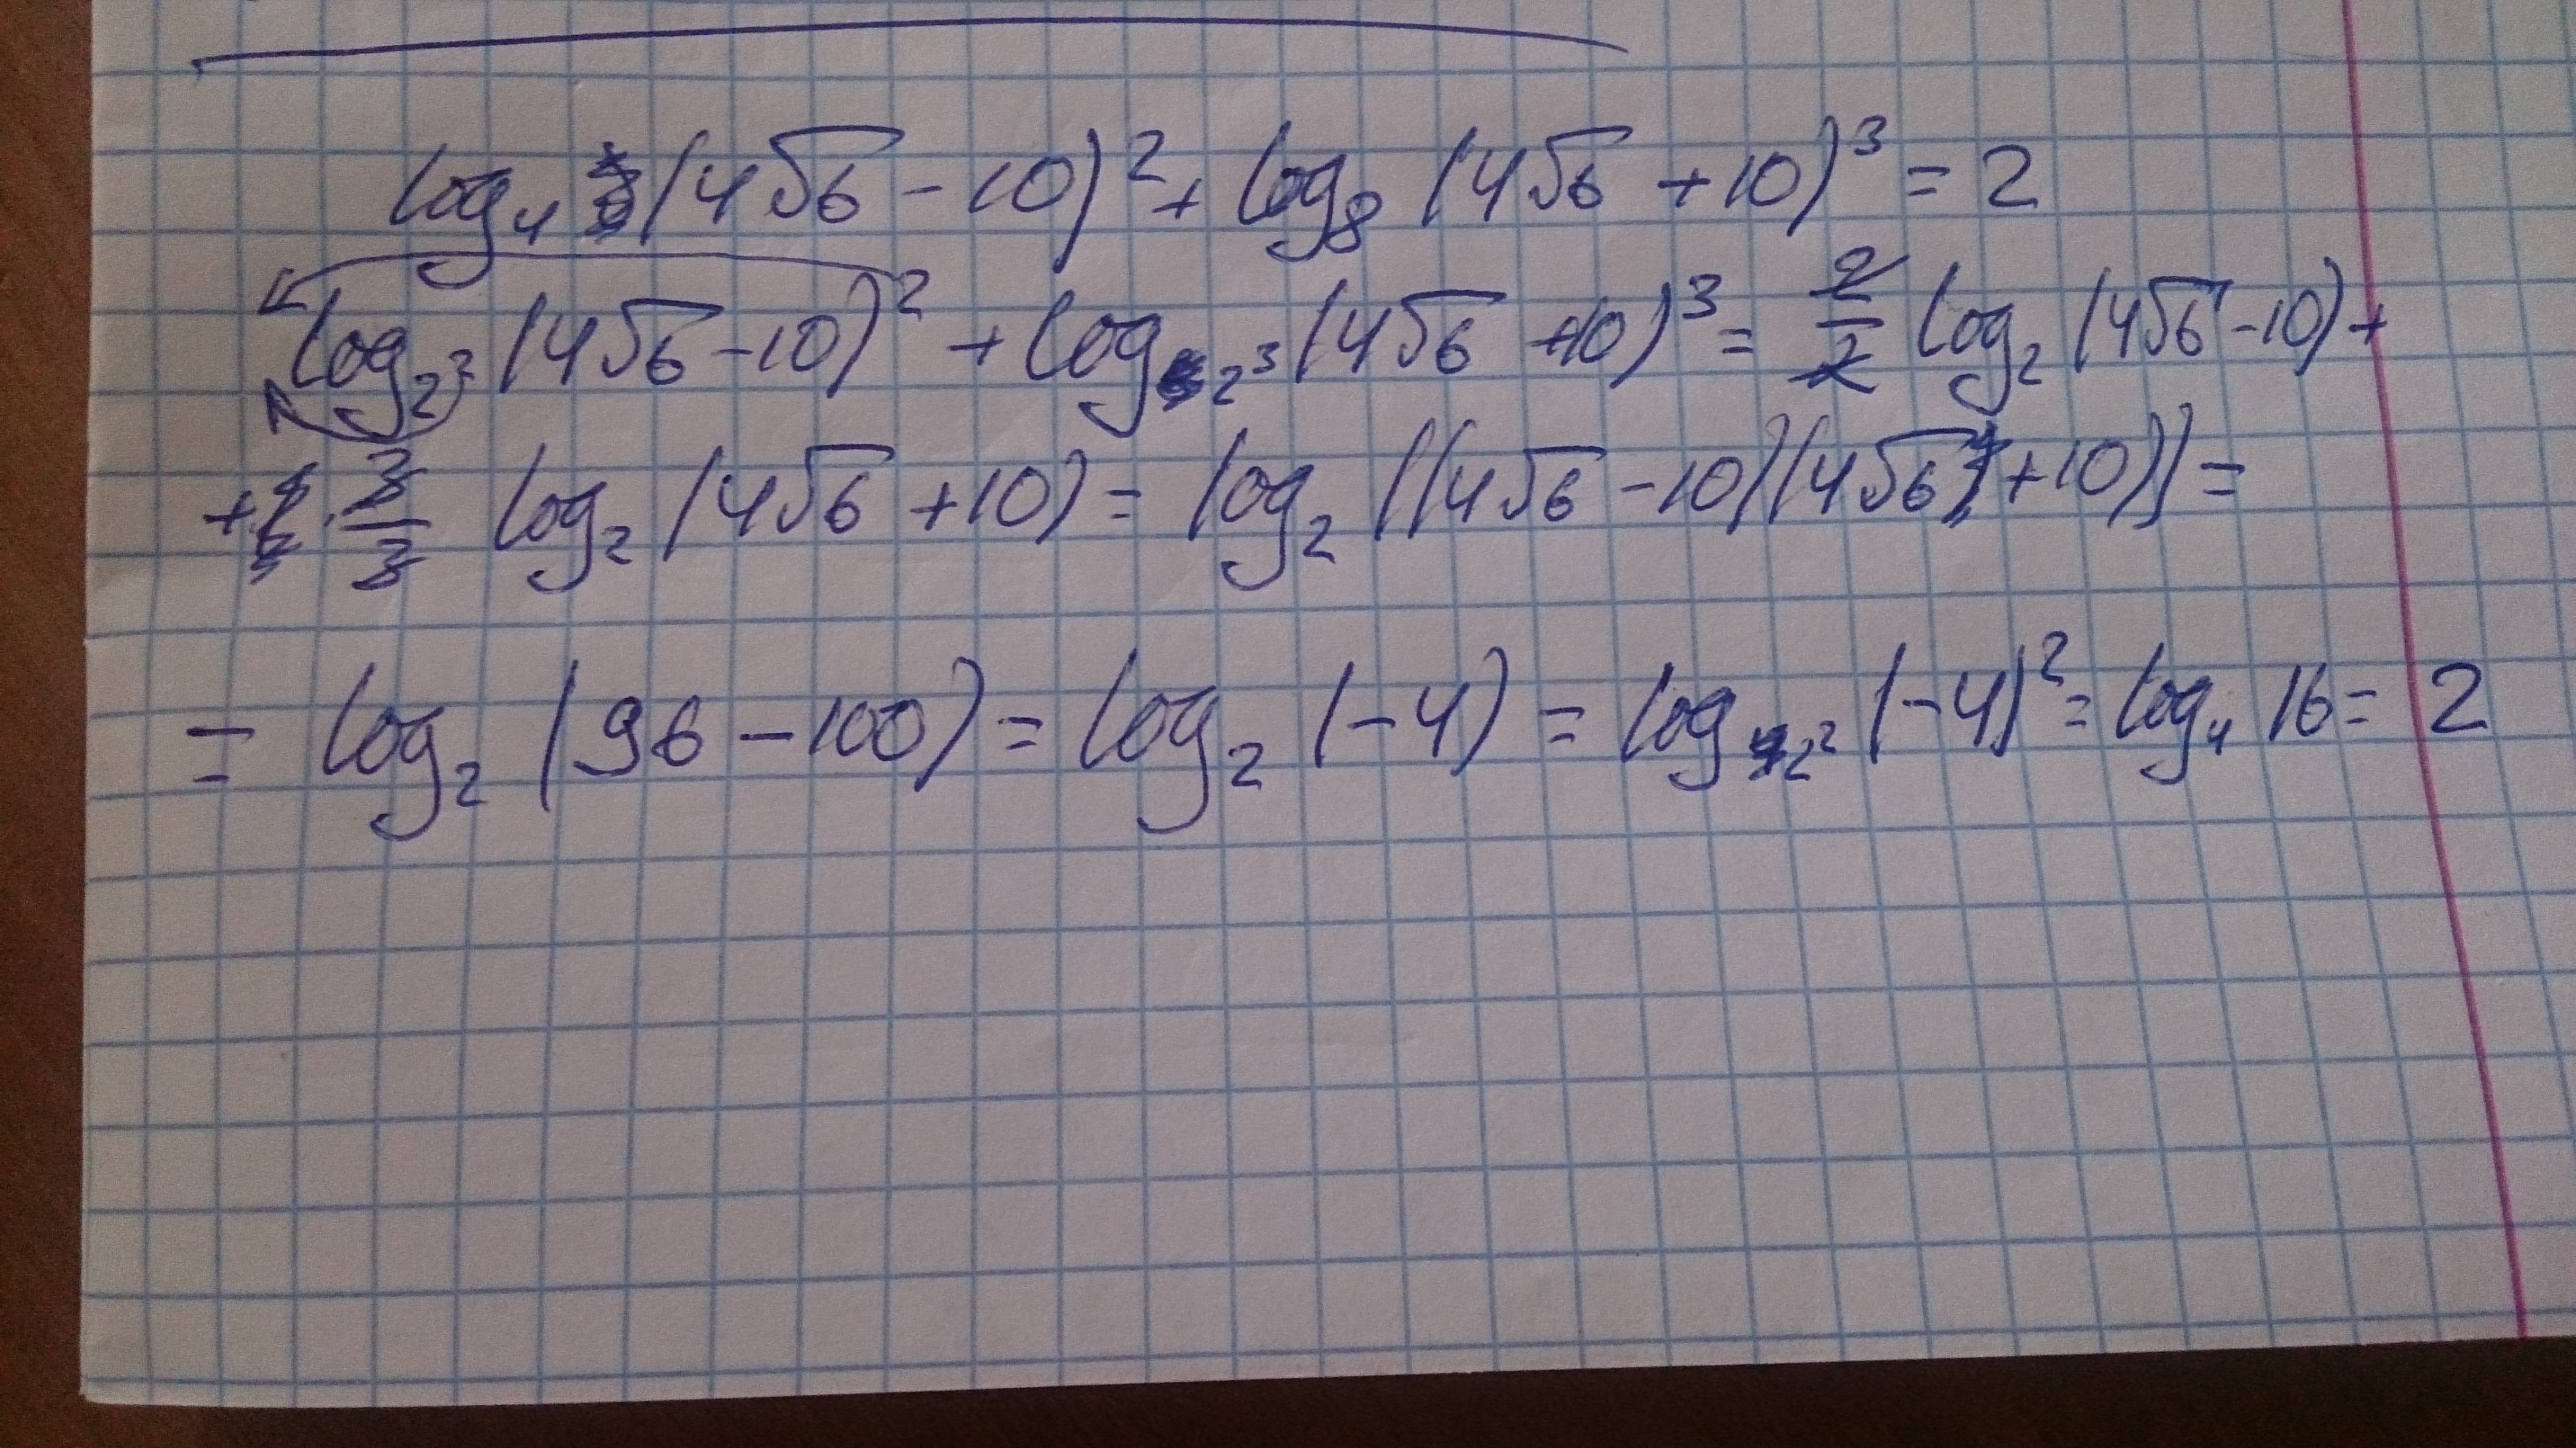 log₄ (4√6 - 10)² + log₈ (4√6 + 10)³ = 2
log₂² (4√6 - 10)² + log₂³ (4√6 + 10)³ = 2/2 log₂ (4√6 - 10) +
+ 3/3 log₂ (4√6 + 10) = log₂ ((4√6 - 10)(4√6 + 10)) =
= log₂ (96 - 100) = log₂ (-4) = log₂² (-4)² = log₄ 16 = 2